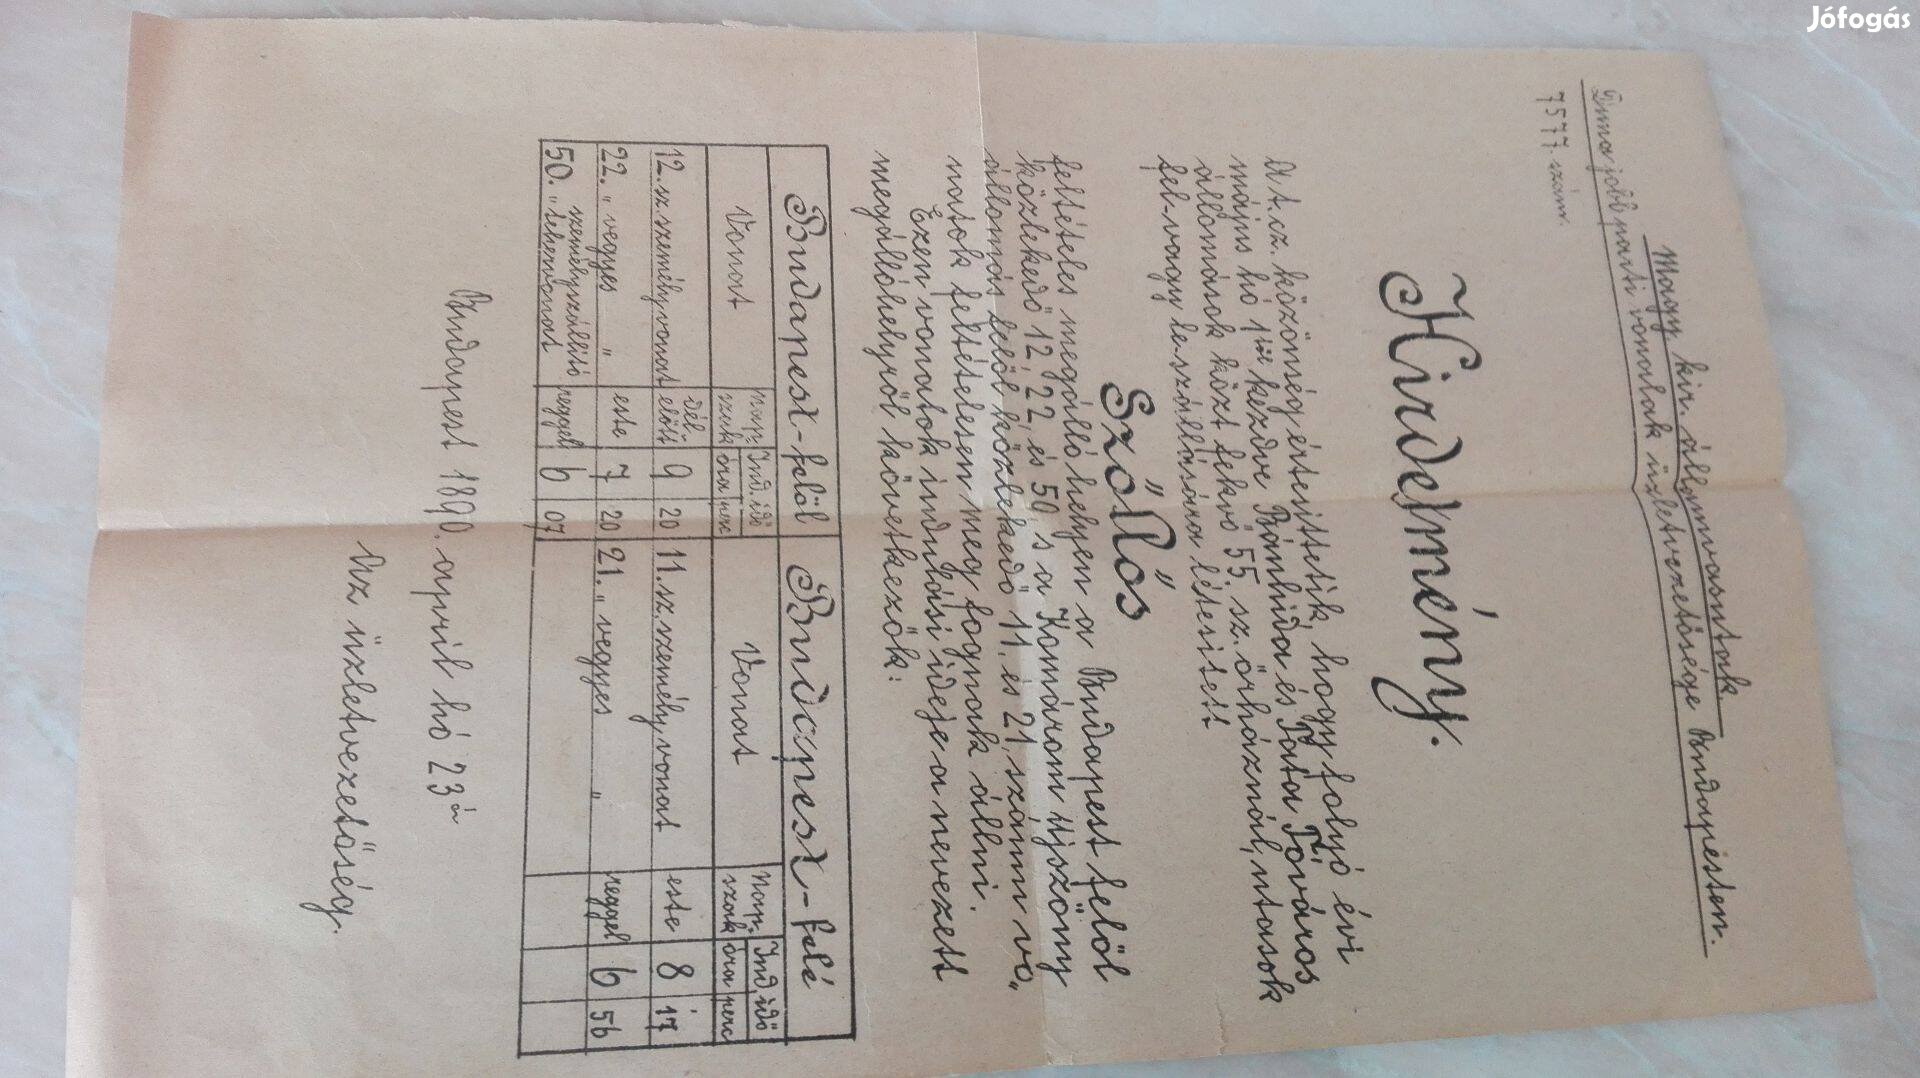 Magy. kir. államvasutak
Duna jobbparti vonalak üzletvezetősége Budapesten.
7577. szám.
Hirdetmény.
A t. cz. közönség értesíttetik, hogy folyó évi
május hó 1től kezdve Bánhida és Tata Tóváros
állomások közt fekvő 55. sz. őrháznál, utasok
fel- vagy le-szállására létesített
Szőllős
feltételes megálló helyen a Budapest felöl
közlekedő 12, 22, és 50 s a Komárom Ujszőny
állomás felöl közlekedő 11, és 21, számu vo„
natok feltételesen meg fognak állni.
Ezen vonatok indulási ideje a nevezett
megállóhelyről következők:
Budapest-felöl Budapest-felé
Vonat Nap. szak Ind. idő óra perc Vonat Nap. szak Ind. idő óra perc
12. sz. személyvonat dél. előtt 9 20 11. sz. személyvonat este 8 17
22. „ vegyes „ este 7 20 21. „ vegyes „ reggel 6 56
50. „ személyszállító tehervonat reggel 6 07
Budapest 1890. april hó 23án
Az üzletvezetőség.
Jófogás